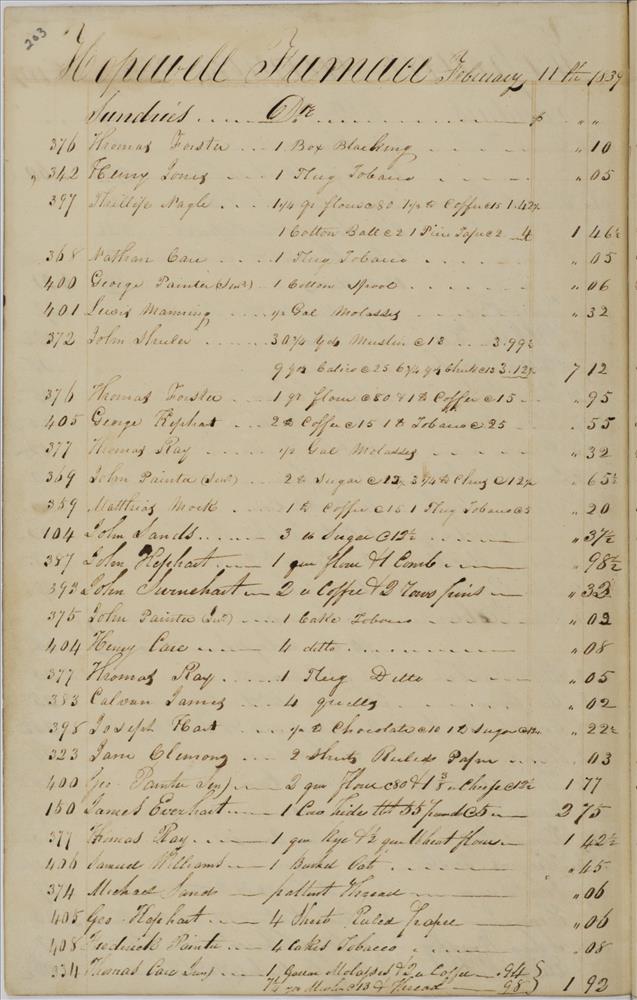 203
Hopewell Furnace February 11th 1839
Sundries ..... Drs ..... $ " "
376 Thomas Foister ... 1 Box Blacking " 10
" 342 Henry Jones ... 1 Plug Tobacco " 05
397 Phillip Nagle ... 1¼ qr flour c80 1½ lb Coffee c15 1.42½
1 Cotton Ball c2 1 Piece Tape c2 4 1 46½
368 Nathan Care ... 1 Plug Tobacco " 05
400 George Painter (Senr) .. 1 Cotton Spool " 06
401 Lewis Manning ... ½ Gal Molasses " 32
372 John Shuler ... 30¾ yds Muslin c13 ... 3.99½
9 yds Calico c25 6¼ yds Check 3.12½ 7 12
376 Thomas Foister ... 1 qr flour c80 & 1 lb Coffee c15 " 95
405 George Hephart ... 2 lb Coffee c15 1 lb Tobacco c25 55
377 Thomas Ray ... ½ Gal Molasses " 32
369 John Painter (Senr) .. 2 lb Sugar c12½ 3¼ lb c12½ " 65½
359 Matthias Mock .. 1 lb Coffee c15 1 Plug Tobacco c5 " 20
104 John Sands ... 3 lb Sugar c12½ " 37½
387 John Hephart ... 1 qur flour & 1 Comb " 98½
393 John Turnehart 2 Coffee & 2 Rows pins " 32
375 John Painter (Jnr) ... 1 Cake Tobacco " 02
404 Henry Care ... 4 ditto " 08
377 Thomas Ray ... 1 Plug Ditto " 05
383 Calvan James ... 4 quills " 02
398 Joseph Hart ... ½ lb Chocolate c10 1 lb Sugar c12½ " 22½
323 Jane Clemons ... 2 Sheets Ruled Paper 03
400 Geo Painter Senr) ... 2 qur flour c80 & 1⅜ Cheese c12½ 1 77
150 James Everhart ... 1 Cow hide 55 pound c5 2 75
377 Thomas Ray ... 1 qur Rye & ½ qur Wheat flour 1 42½
406 Samuel Williams 1 Bushel Oats " 45
374 Michael Sands pattent Thread " 06
405 Geo Hephart ... 4 Sheets Ruled paper " 06
408 Frederick Painter ... 4 Cakes Tobacco " 08
334 Thomas Care Junr) ... 1 Molasses & 2 Coffee .94
7½ yds Muslin c13 & Thread 98 1 92